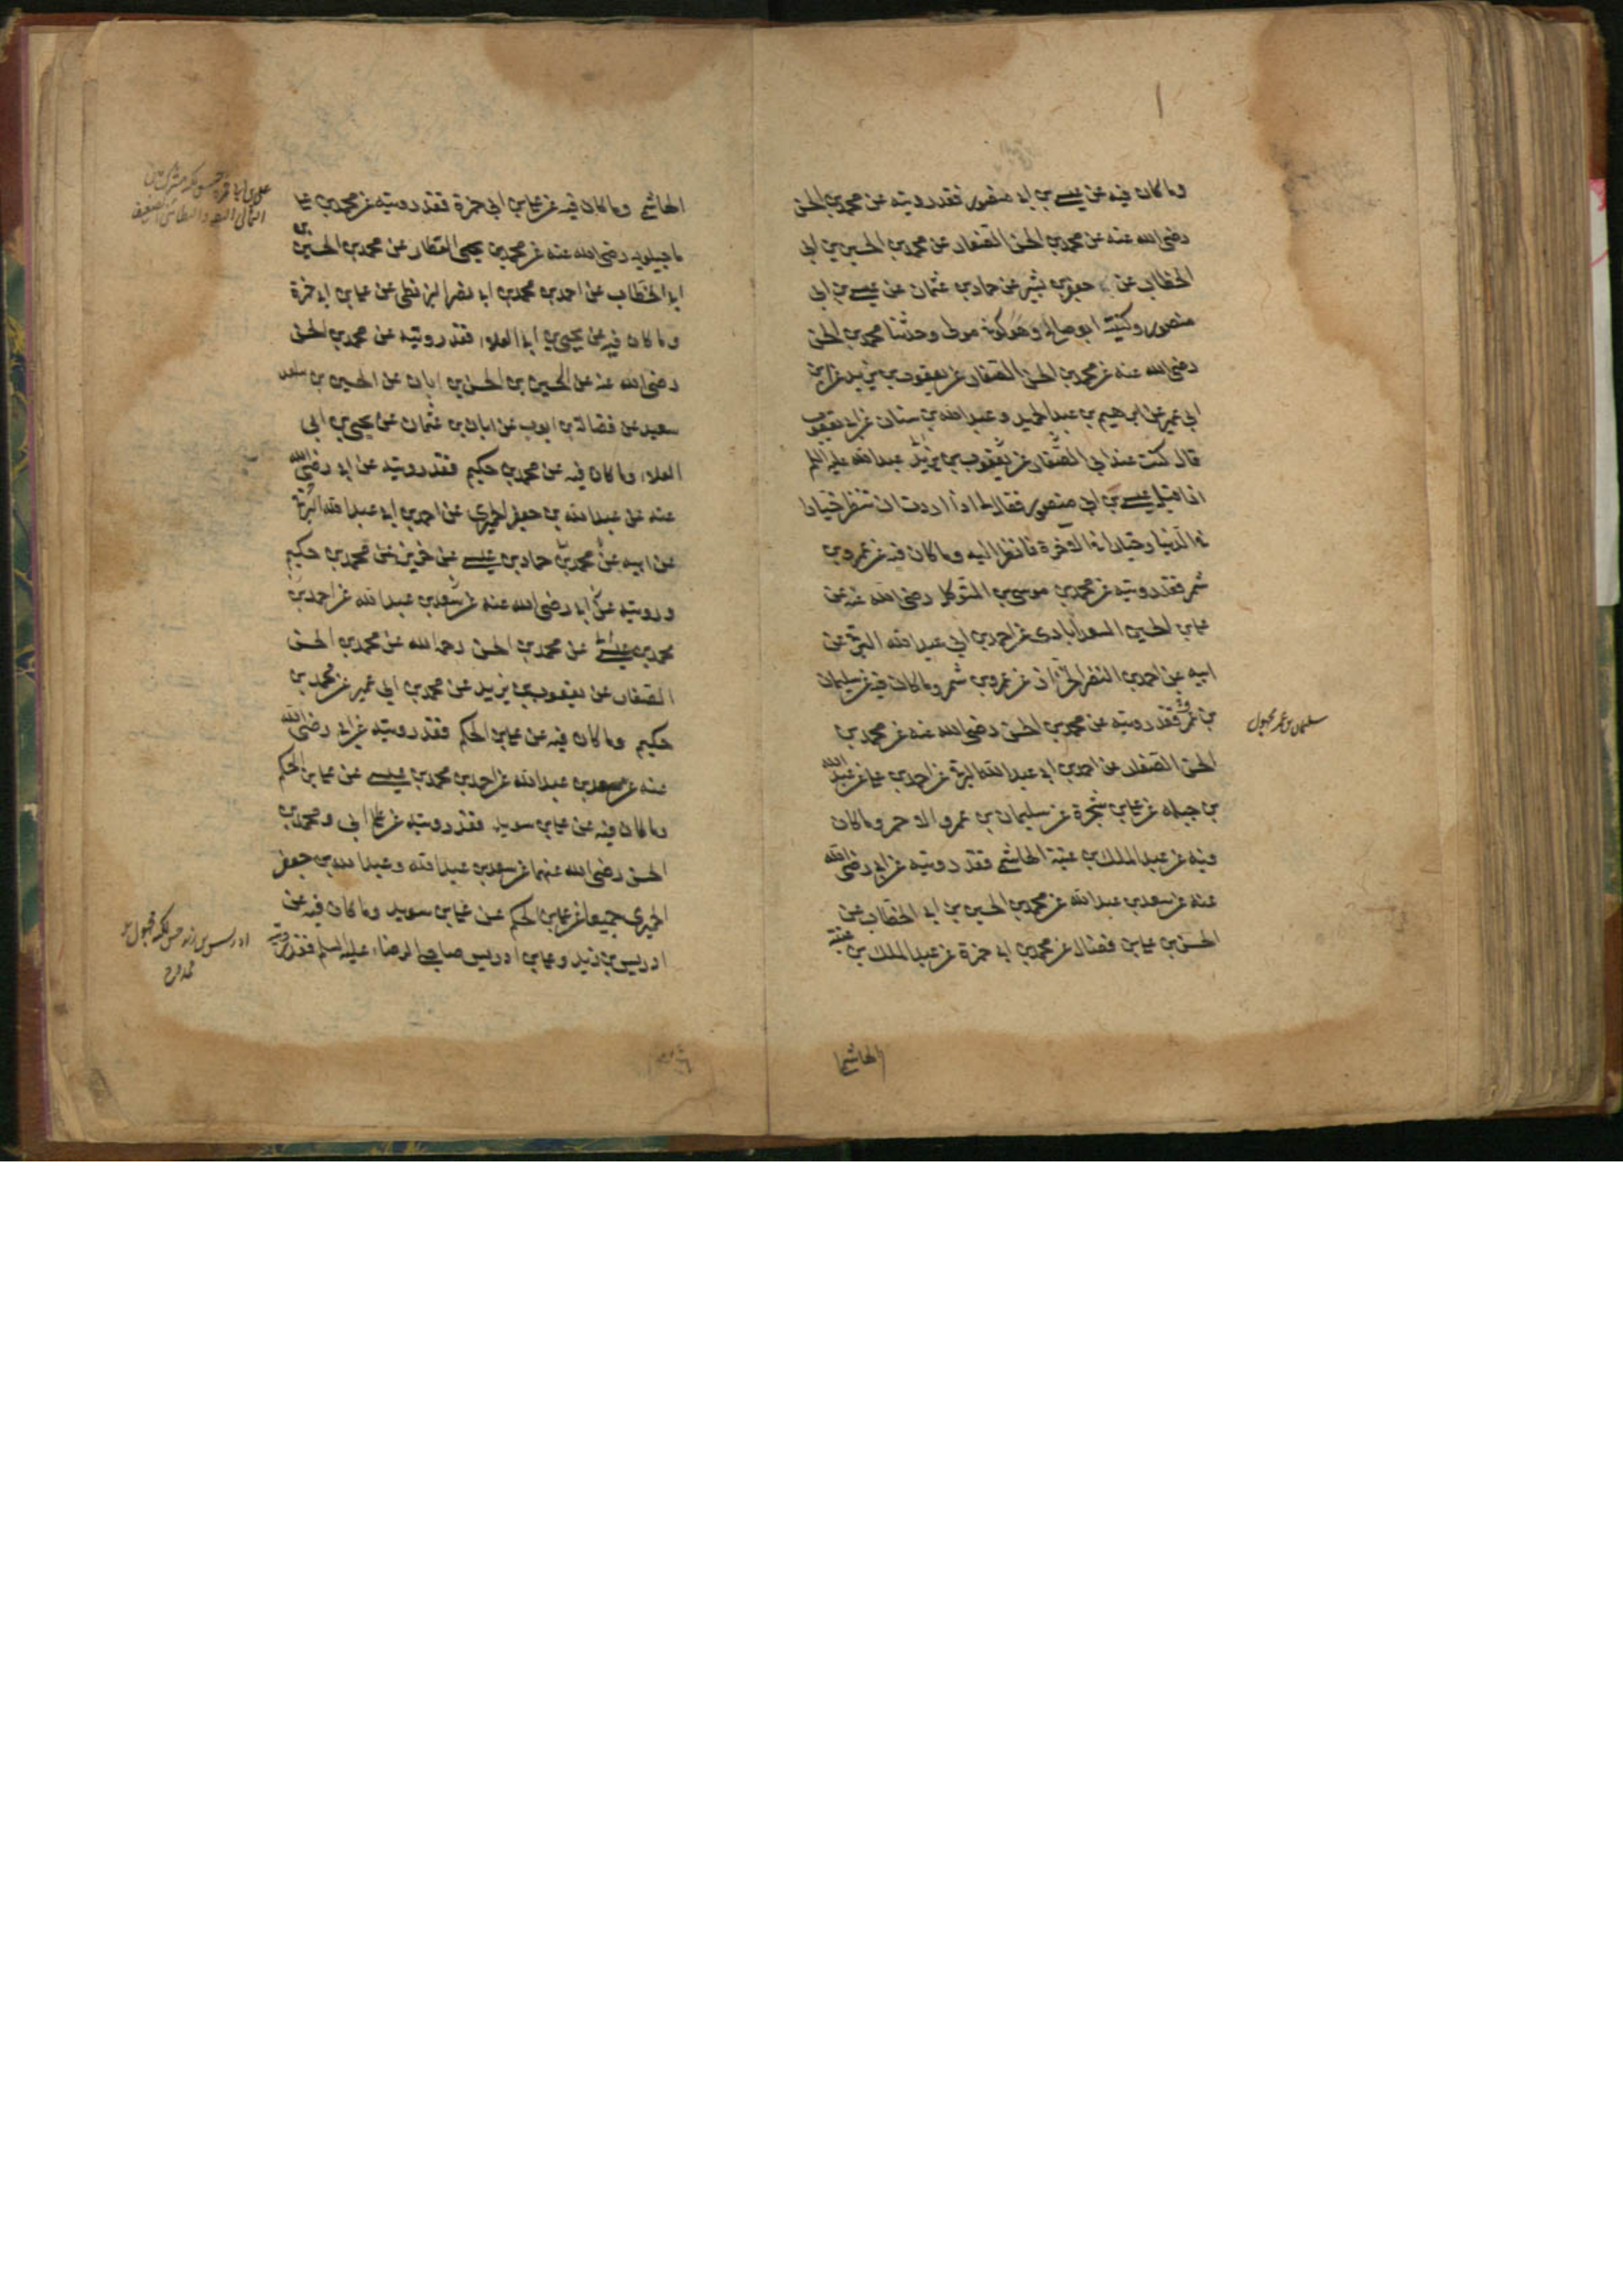 وما كان فيه عن عيسى بن ابى منصور فقد رويته عن محمد بن الحسن
رضى الله عنه عن محمد بن الحسن الصفار عن محمد بن الحسين بن ابى
الخطاب عن جعفر بن بشير عن حماد بن عثمان عن عيسى بن ابى
منصور وكنيته ابو صالح وهو كوفى مولى وحدثنا محمد بن الحسن
رضى الله عنه عن محمد بن الحسن الصفار عن يعقوب بن يزيد عن ابن
ابى عمير عن ابرهيم بن عبد الحميد وعبد الله بن سنان عن ابن ابى يعفور
قال كنت عند ابى عبد الله عليه السلم
اذا قبل عيسى بن ابى منصور فقال لى اذا اردت ان تنظر خيارا
فى الدنيا وخيارا فى الاخرة فانظر اليه وما كان فيه عن عمرو بن
شمر فقد رويته عن محمد بن موسى بن المتوكل رضى الله عنه عن
على بن الحسين السعد آبادى عن احمد بن ابى عبد الله البرقى عن
ابيه عن احمد بن النضر الخزاز عن عمرو بن شمر وما كان فيه عن سليمان
بن عمرو فقد رويته عن محمد بن الحسن رضى الله عنه عن محمد بن
الحسن الصفار عن احمد بن ابى عبد الله البرقى عن احمد بن على عن عبد الله
بن جبله عن على بن شجرة عن سليمان بن عمرو الاحمر وما كان
فيه عن عبد الملك بن عتبة الهاشمى فقد رويته عن ابى رضى الله
عنه عن سعد بن عبد الله عن محمد بن الحسين بن ابى الخطاب عن
الحسن بن على بن فضال عن محمد بن ابى حمزة عن عبد الملك بن عتبة
الهاشمى
سليمان بن عمر مجهول
الهاشمى وما كان فيه عن على بن ابى حمزة فقد رويته عن محمد بن على
ماجيلويه رضى الله عنه عن محمد بن يحيى العطار عن محمد بن الحسين بن
ابى الخطاب عن احمد بن محمد بن ابى نصر البزنطى عن على بن ابى حمزة
وما كان فيه عن يحيى بن ابى العلاء فقد رويته عن محمد بن الحسن
رضى الله عنه عن الحسين بن الحسن بن ابان عن الحسين بن سعيد
سعيد عن فضالة بن ايوب عن ابان بن عثمان عن يحيى بن ابى
العلاء وما كان فيه عن محمد بن حكيم فقد رويته عن ابى رضى الله
عنه عن عبد الله بن جعفر الحميرى عن احمد بن ابى عبد الله البرقى
عن ابيه عن محمد بن حماد بن عيسى عن حريز عن محمد بن حكيم
ورويته عن ابى رضى الله عنه عن سعد بن عبد الله عن احمد بن
محمد بن عيسى عن محمد بن الحسن رحمه الله عن محمد بن الحسن
الصفار عن يعقوب بن يزيد عن محمد بن ابى عمير عن محمد بن
حكيم وما كان فيه عن على بن الحكم فقد رويته عن ابى رضى الله
عنه عن سعد بن عبد الله عن احمد بن محمد بن عيسى عن على بن الحكم
وما كان فيه عن على بن سويد فقد رويته عن ابى ومحمد بن
الحسن رضى الله عنهما عن سعد بن عبد الله وعبد الله بن جعفر
الحميرى جميعا عن على بن الحكم عن على بن سويد وما كان فيه عن
ادريس بن زيد وعلى بن ادريس صاحبى الرضاء عليه السلم فقد رويته